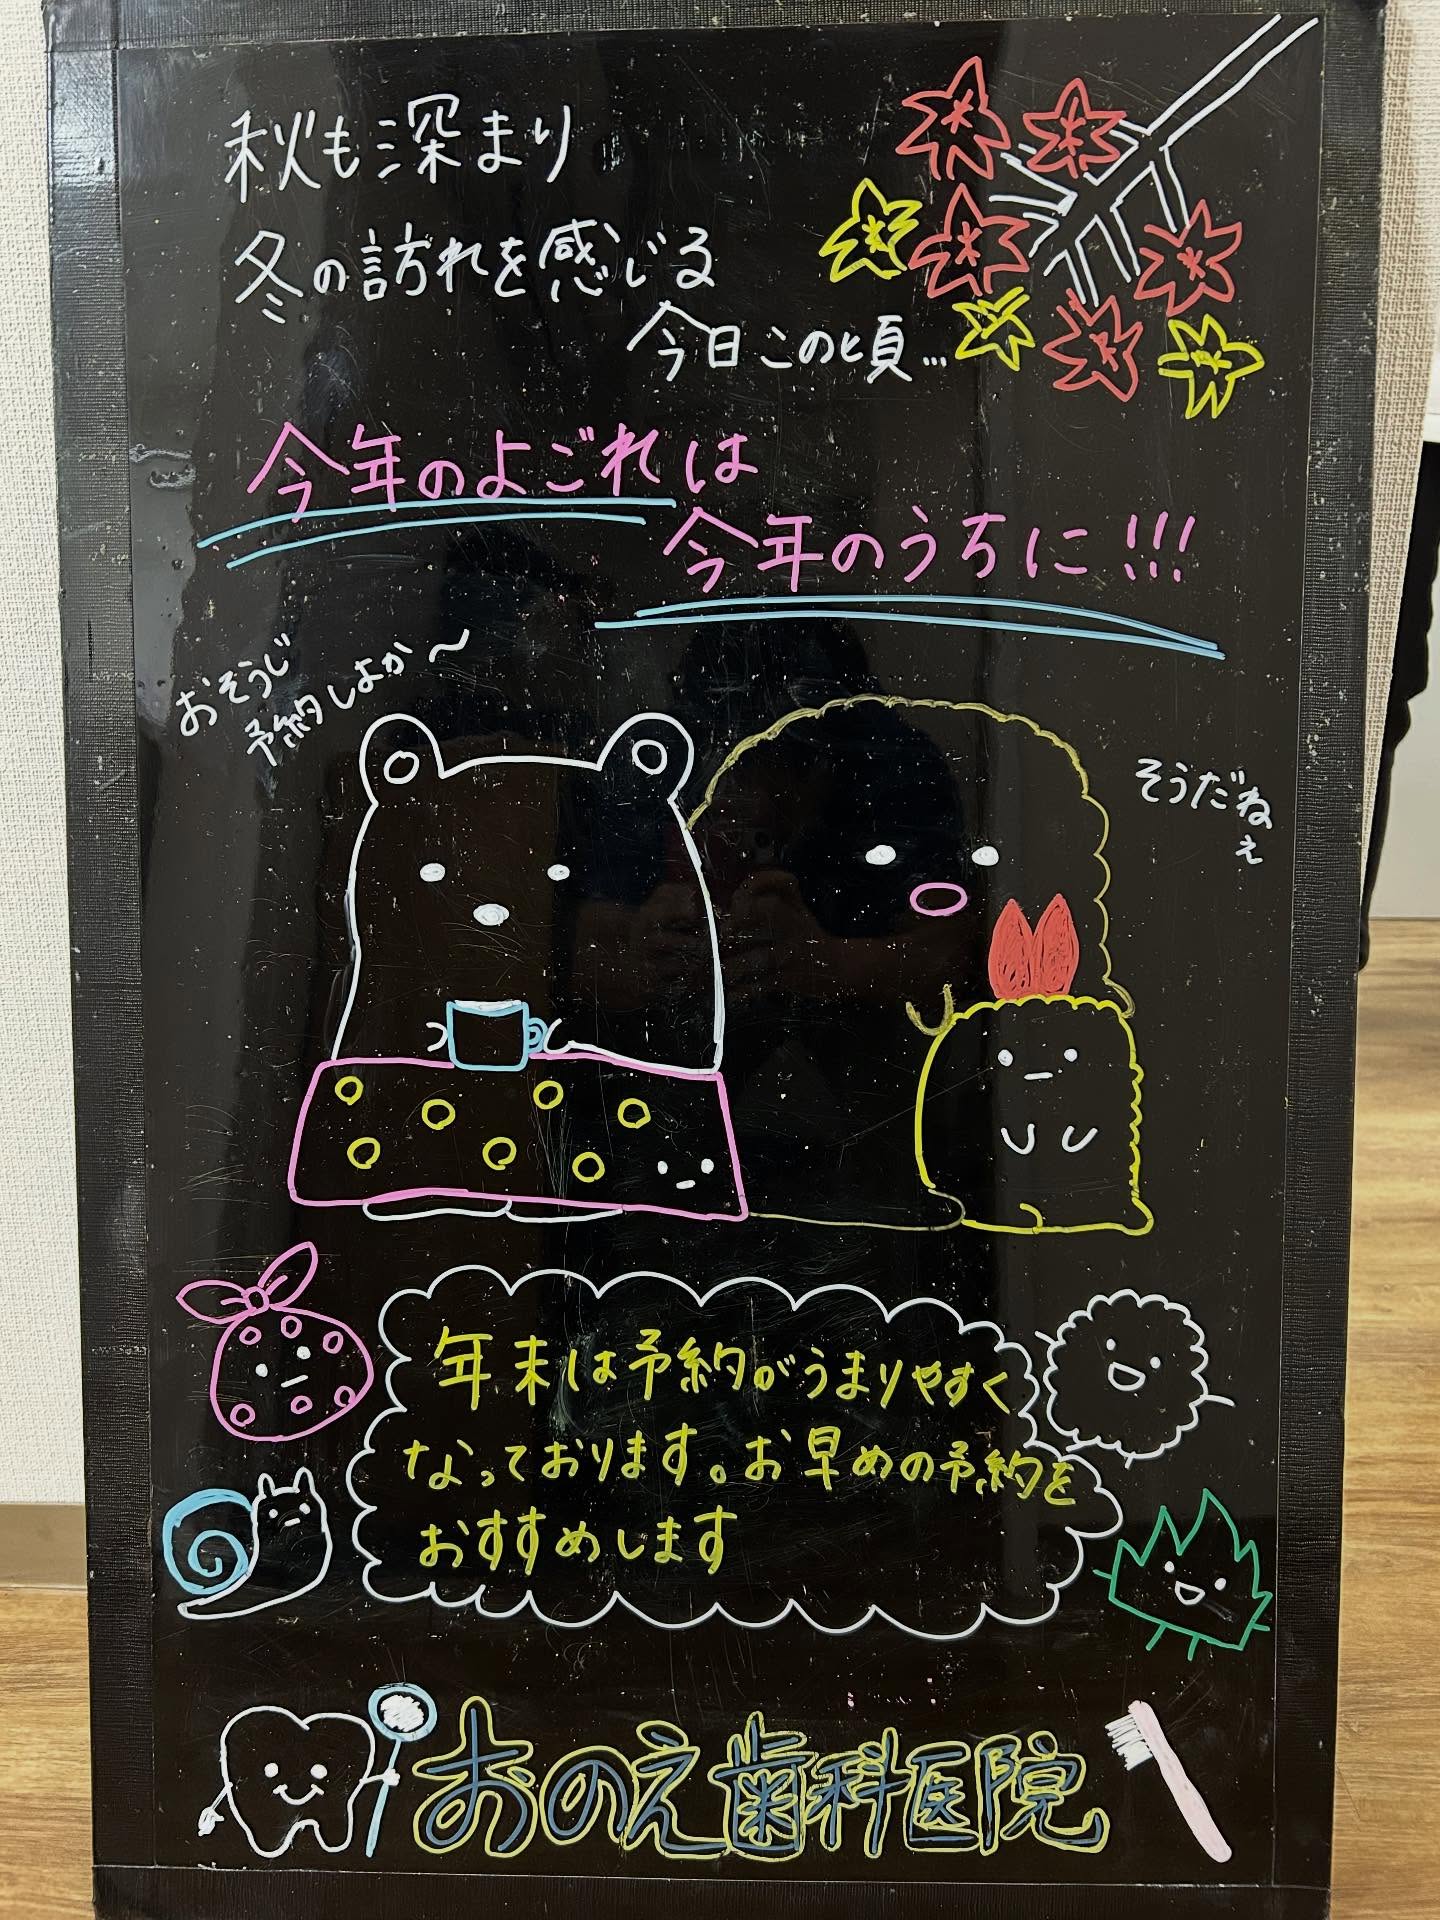 秋も深まり
冬の訪れを感じる
今日この頃...
今年のよごれは
今年のうちに!!!
おそうじ
予約しよか〜
そうだね
ぇ
年末は予約がうまりやすく
なっております。お早めの予約を
おすすめします
おのえ歯科医院